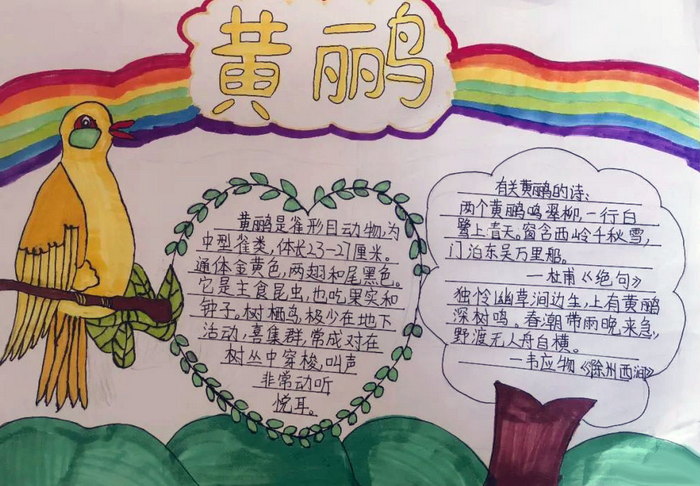 黄鹂
黄鹂是雀形目动物,为
中型雀类,体长23-27厘米。
通体金黄色,两翅和尾黑色。
它是主食昆虫,也吃果实和
种子,树栖鸟,极少在地下
活动,喜集群,常成对在
树丛中穿梭,叫声
非常动听
悦耳。
有关黄鹂的诗:
两个黄鹂鸣翠柳,一行白
鹭上青天。窗含西岭千秋雪,
门泊东吴万里船。
—杜甫《绝句》
独怜幽草涧边生,上有黄鹂
深树鸣。春潮带雨晚来急,
野渡无人舟自横。
—韦应物《滁州西涧》